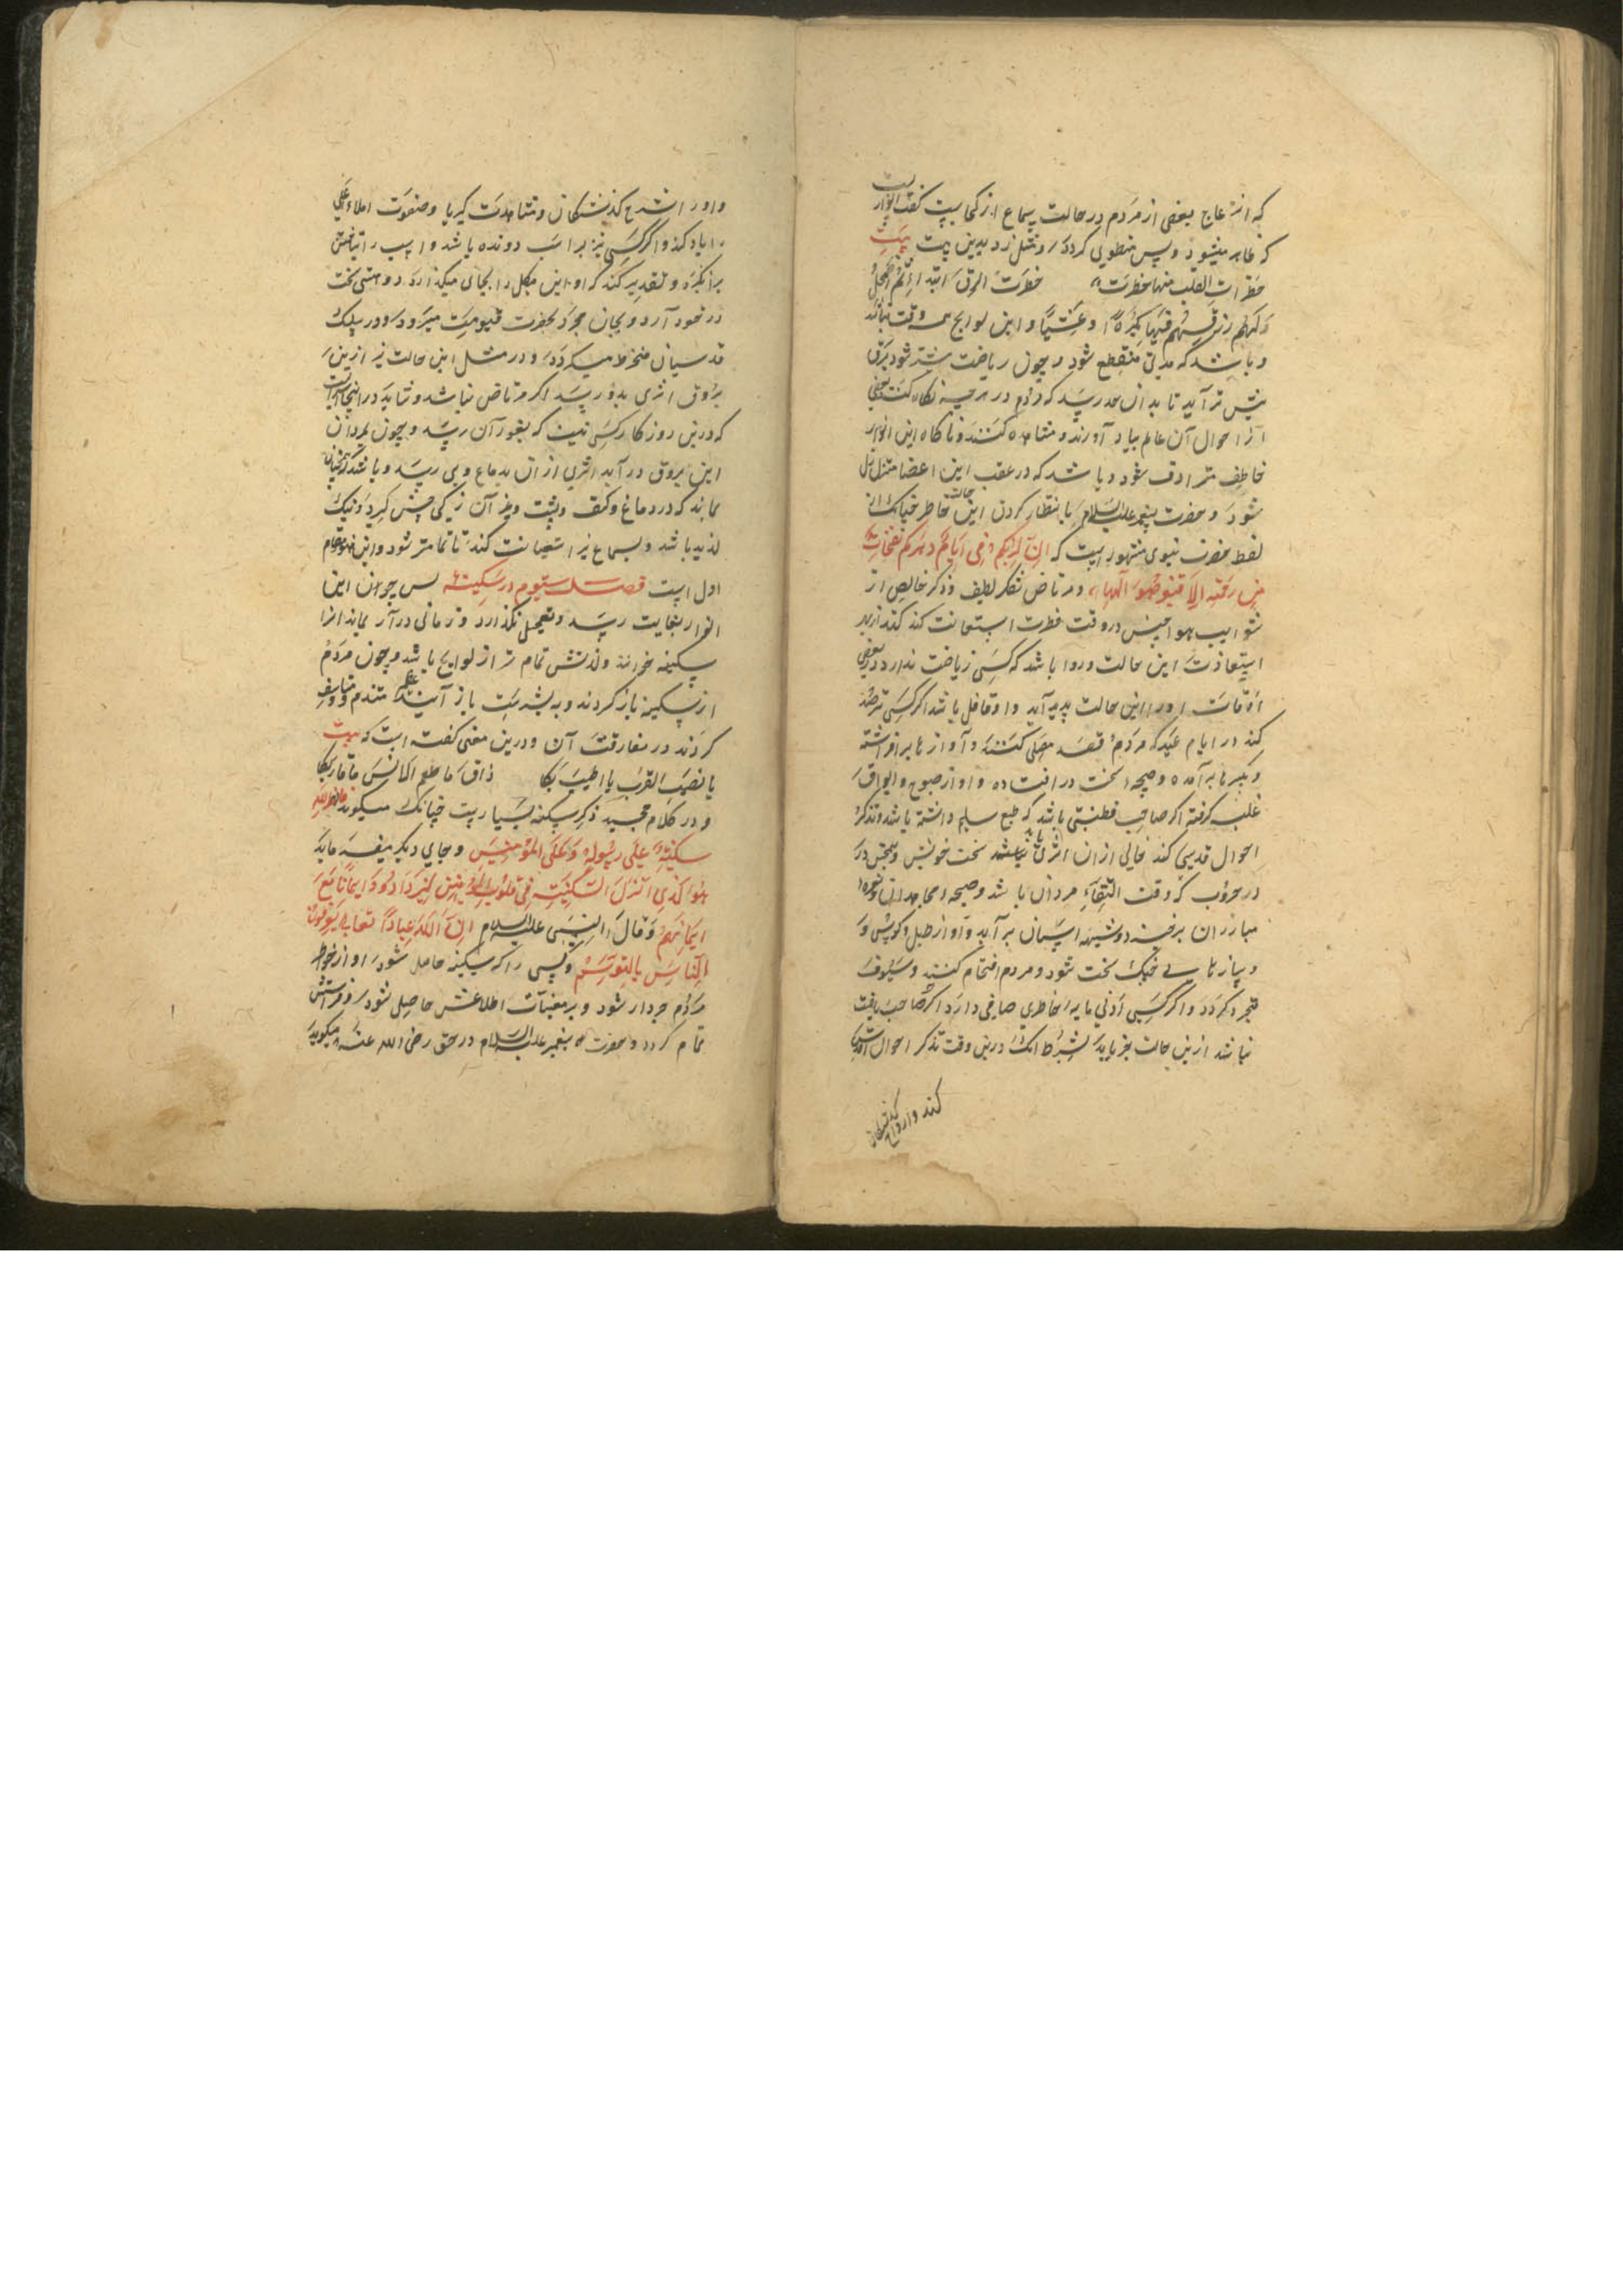 که انزعاج بعضی از مردم در حالت سماع از کجاست گفت انواریست
که ظاهر میشود و پس منطوی گردد و مثل زد بدین بیت بیت
خطرات القلب منها خطرت خطرت البرق ابتداء ثم اضمحل
و لهم رزقهم فیها بکرة و عشیا و این لوایح همه وقت نباشد
و باشد که مدتی منقطع شود و چون ریاضت بیشتر شود برق
بیش تر آید تا بدان حد رسد که مردم در هر چه نگاه کنند بعضی
از احوال آن عالم بیاد آورند و مشاهده کنند و ناگاه این انوار
خاطف مترادف شود و باشد که در عقب این اعضا متزلزل
شود و حضرت پیغمبر علیه السلام بانتظار کردن این حالت خاطر چنانک از
لفظ حضرت نبوی مشهور است که ان لربکم فی ایام دهرکم نفحات
من رحمته الا فتعرضوا لها و مرتاض بفکر لطیف و ذکر خالص از
شوایب هواجس در وقت فطرت استعانت کند کند از بهر
استعاذت این حالت و روا باشد که کسی ریاضت ندارد در بعضی
اوقات او را این حالت پدید آید و او غافل باشد اگر کسی ترصد
کند در ایام عید که مردم قصد مصلی کنند و آواز ها برافراشته
و تکبیر ها برآمده و صیحه سخت در افتاده و آواز صنوج و ابواق
غلبه گرفته اگر صاحب فطنتی باشد که طبع سلیم داشته باشد و تذکر
احوال قدسی کند حالی ازان اثری یابد سخت خوش و همچنین در
در حروب که وقت التقاء مردان باشد و صیحه مجاهدان و نعره
مبارزان برخیزد و شیهه اسپان برآید و آواز طبل و کوس و
و پیاز ها سی جنگ سخت شود و مردم اقتحام کنند و سیوف
مجرد گردد و اگر کسی ادنی مایه خاطری صافی دارد اگر چه صاحب ریاضت
نباشد ازین حالت خبر یابد بشرط آنک درین وقت تذکر احوال قدسی
کند و ارواح گذشتگان
و ارواح گذشتگان و مشاهدت کبریا و صفوت املاء اعلی
را یاد کند و اگر کسی نیز بر اسب دونده باشد و اسب را تاختن
برانگیزد و تقدیر کند که او این هیکل را بجای میگذارد و هیبتی سخت
در خود آرد و بجان مجرد بحضرت قیومیت میرود و در سلک
قدسیان منخرط میگردد و در مثل این حالت نیز ازین
بروق اثری بدو رسد اگر مرتاض نباشد و شاید در اینجا
که درین روزگار کسی نیست که بغور آن رسد و چون بمردان
این بروق در آید اثری از آن بدماغ وی رسد و باشد که چنان
نماید که در دماغ و کتف و پشت و غیر آن رگی جستن گیرد نیک
لذیذ باشد و بسماع نیز استعانت کند تا تمام تر شود و این مقام
اول است فصل سیوم در سکینه پس چون این
انوار بغایت رسد و بتعجیل نگذارد و زمانی دراز بماند انرا
سکینه خوانند و لذتش تمام تر از لوایح باشد و چون مردم
از سکینه بازگردند و به بشریت باز آیند عظیم متندم و متاسف
گردند در مفارقت آن و درین معنی گفته است که بیت
یا نصیب القرب ما اطیبکا ذاق ما طعم الانس ما قاربکا
و در کلام مجید ذکر سکینه بسیارست چنانک میگوید فانزل الله
سکینته علی رسوله و علی المؤمنین و جای دیگر میفرماید
هو الذی انزل السکینة فی قلوب المؤمنین لیزدادوا ایمانا مع
ایمانهم و قال النبی علیه السلام ان لله عبادا یعرفون
الناس بالتوسم و کسی را که سکینه حاصل شود او از خواطر
مردم خبردار شود و بر مغیبات اطلاعش حاصل شود و فراستش
تمام گردد و حضرت پیغمبر علیه السلام در حق رضی الله عنه میگوید